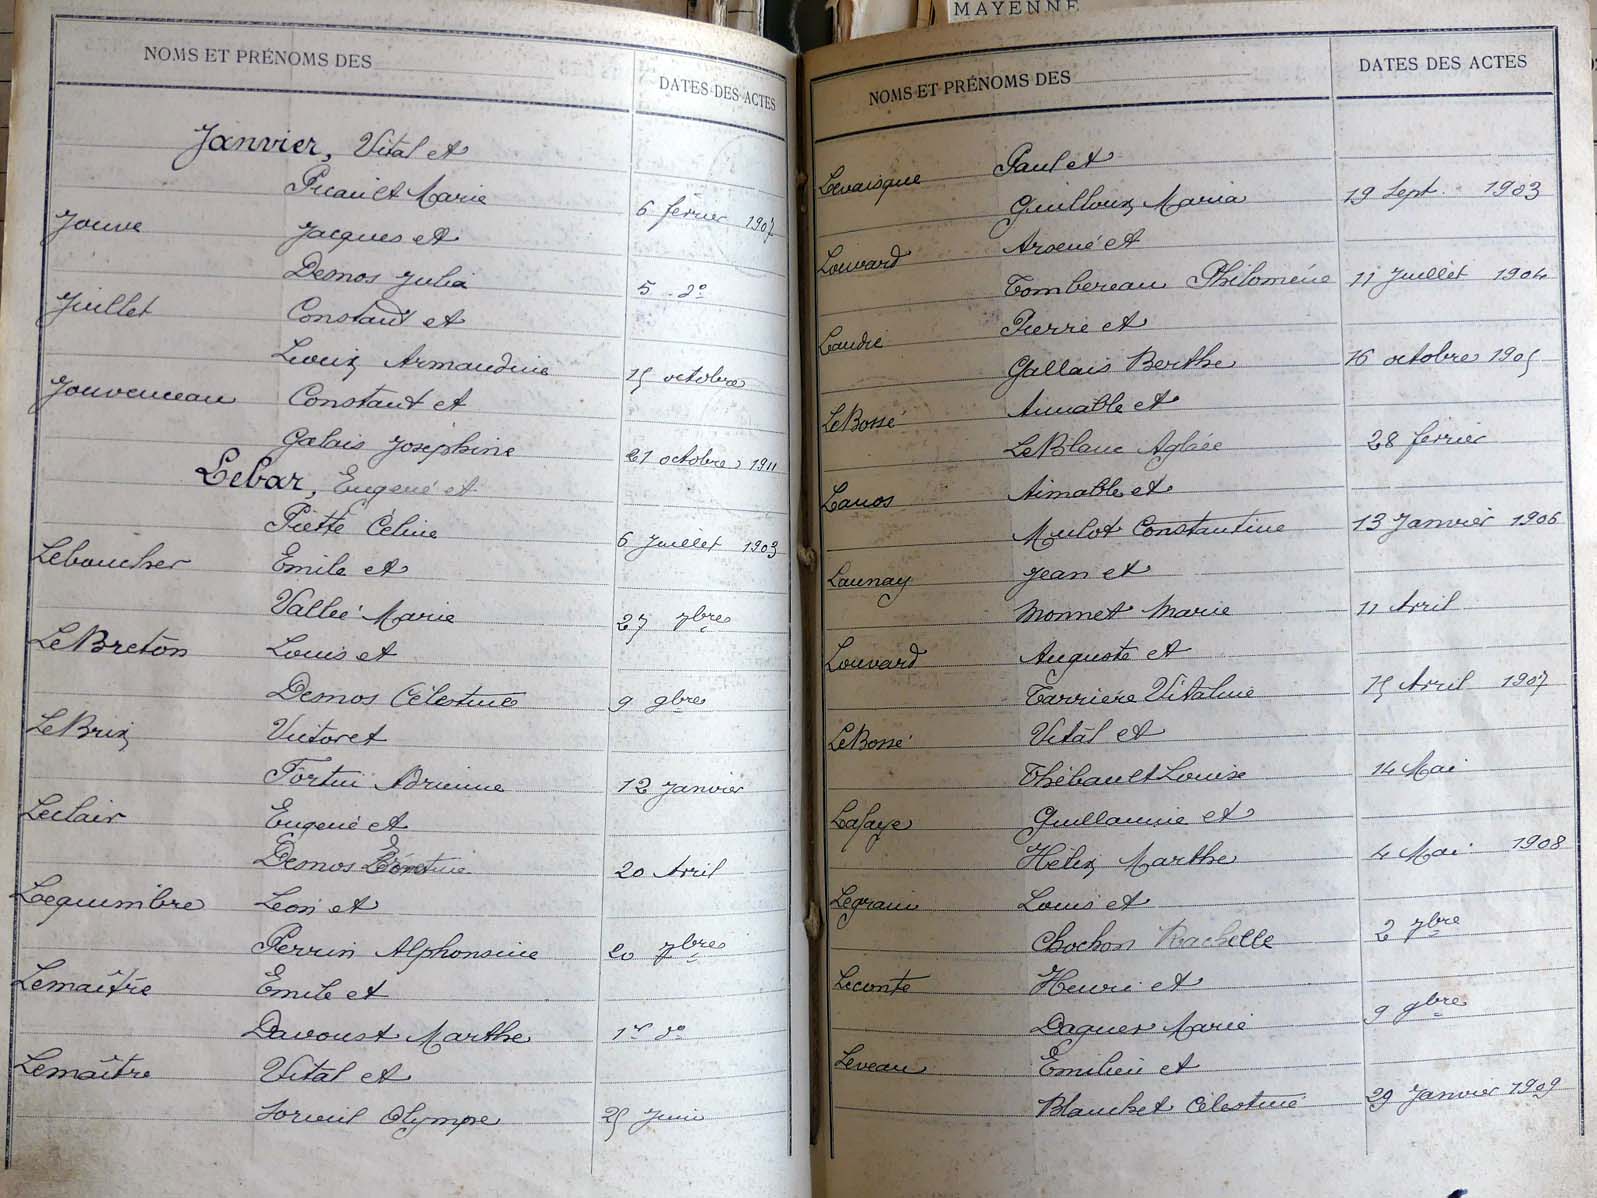 MAYENNE
NOMS ET PRÉNOMS DES
DATES DES ACTES
Janvier, Vital et
Picault Marie 6 février 1907
Jouve Jacques et
Desnos Julia 5 do
Juillet Constant et
Louis Armandine 15 octobre
Jouvenceau Constant et
Galais Joséphine 21 octobre 1911
Lebar, Eugené et
Piette Céline 6 Juillet 1903
Leboucher Emile et
Vallée Marie 27 7bres
LeBreton Louis et
Desnos Célestine 9 9bres
LeBrix Victor et
Fortin Adrienne 12 Janvier
Leclair Eugené et
Desnos 20 Avril
Lequimbre Leon et
Perrin Alphonsine 20 7bres
Lemaître Emile et
Davoust Marthe 1er do
Lemaître Vital et
Olympe 25 Juin
NOMS ET PRÉNOMS DES
DATES DES ACTES
Levaisque Paul et
Guilloux Maria 19 Sept. 1903
Louvard Arsené et
Tombereau Philoméne 11 Juillet 1904
Laudie Pierre et
Gallais Berthe 16 octobre 1905
LeBossé Aimable et
LeBlanc Aglaée 28 ferrier
Lanos Aimable et
Mulot Constantine 13 Janvier 1906
Launay Jean et
Monnet Marie 11 Avril
Louvard Auguste et
Tarriere Vitaline 15 Avril 1907
LeBossé Vital et
Thébault Louise 14 Mai
Lafaye Guillaume et
Hélix Marthe 4 Mai 1908
Legrain Louis et
Chochon Rachelle 2 7bre
Leconte Henri et
Daguer Marie 9 9bre
Leveau Emilien et
Blanchet Célestine 29 Janvier 1909